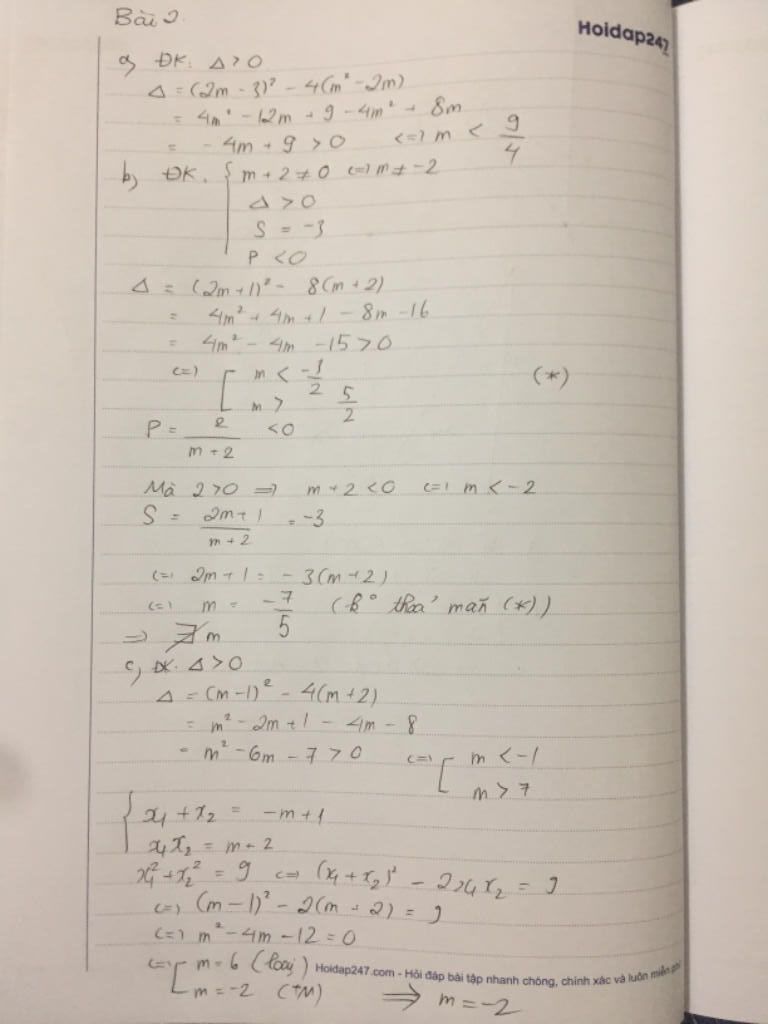 Bài 2.
Hoidap247
a) ĐK: Δ > 0
Δ = (2m - 3)² - 4(m² - 2m)
= 4m² - 12m + 9 - 4m² + 8m
= - 4m + 9 > 0 <=> m < 9/4
b) ĐK. { m + 2 ≠ 0 <=> m ≠ -2
Δ > 0
S = -3
P < 0
Δ = (2m+1)² - 8(m+2)
= 4m² + 4m + 1 - 8m - 16
= 4m² - 4m - 15 > 0
<=> [ m < -3/2 (*)
m > 5/2
P = 2/(m+2) < 0
Mà 2 > 0 => m + 2 < 0 <=> m < -2
S = (2m+1)/(m+2) = -3
<=> 2m + 1 = - 3(m+2)
<=> m = -7/5 (k° thoả mãn (*))
=> ∄ m
c) ĐK. Δ > 0
Δ = (m-1)² - 4(m+2)
= m² - 2m + 1 - 4m - 8
= m² - 6m - 7 > 0 <=> [ m < -1
m > 7
{ x₁ + x₂ = -m + 1
x₁x₂ = m + 2
x₁² + x₂² = 9 <=> (x₁ + x₂)² - 2x₁x₂ = 9
<=> (m-1)² - 2(m+2) = 9
<=> m² - 4m - 12 = 0
<=> [ m = 6 (loại)
Hoidap247.com - Hỏi đáp bài tập nhanh chóng, chính xác và luôn miễn phí
m = -2 (TM) => m = -2